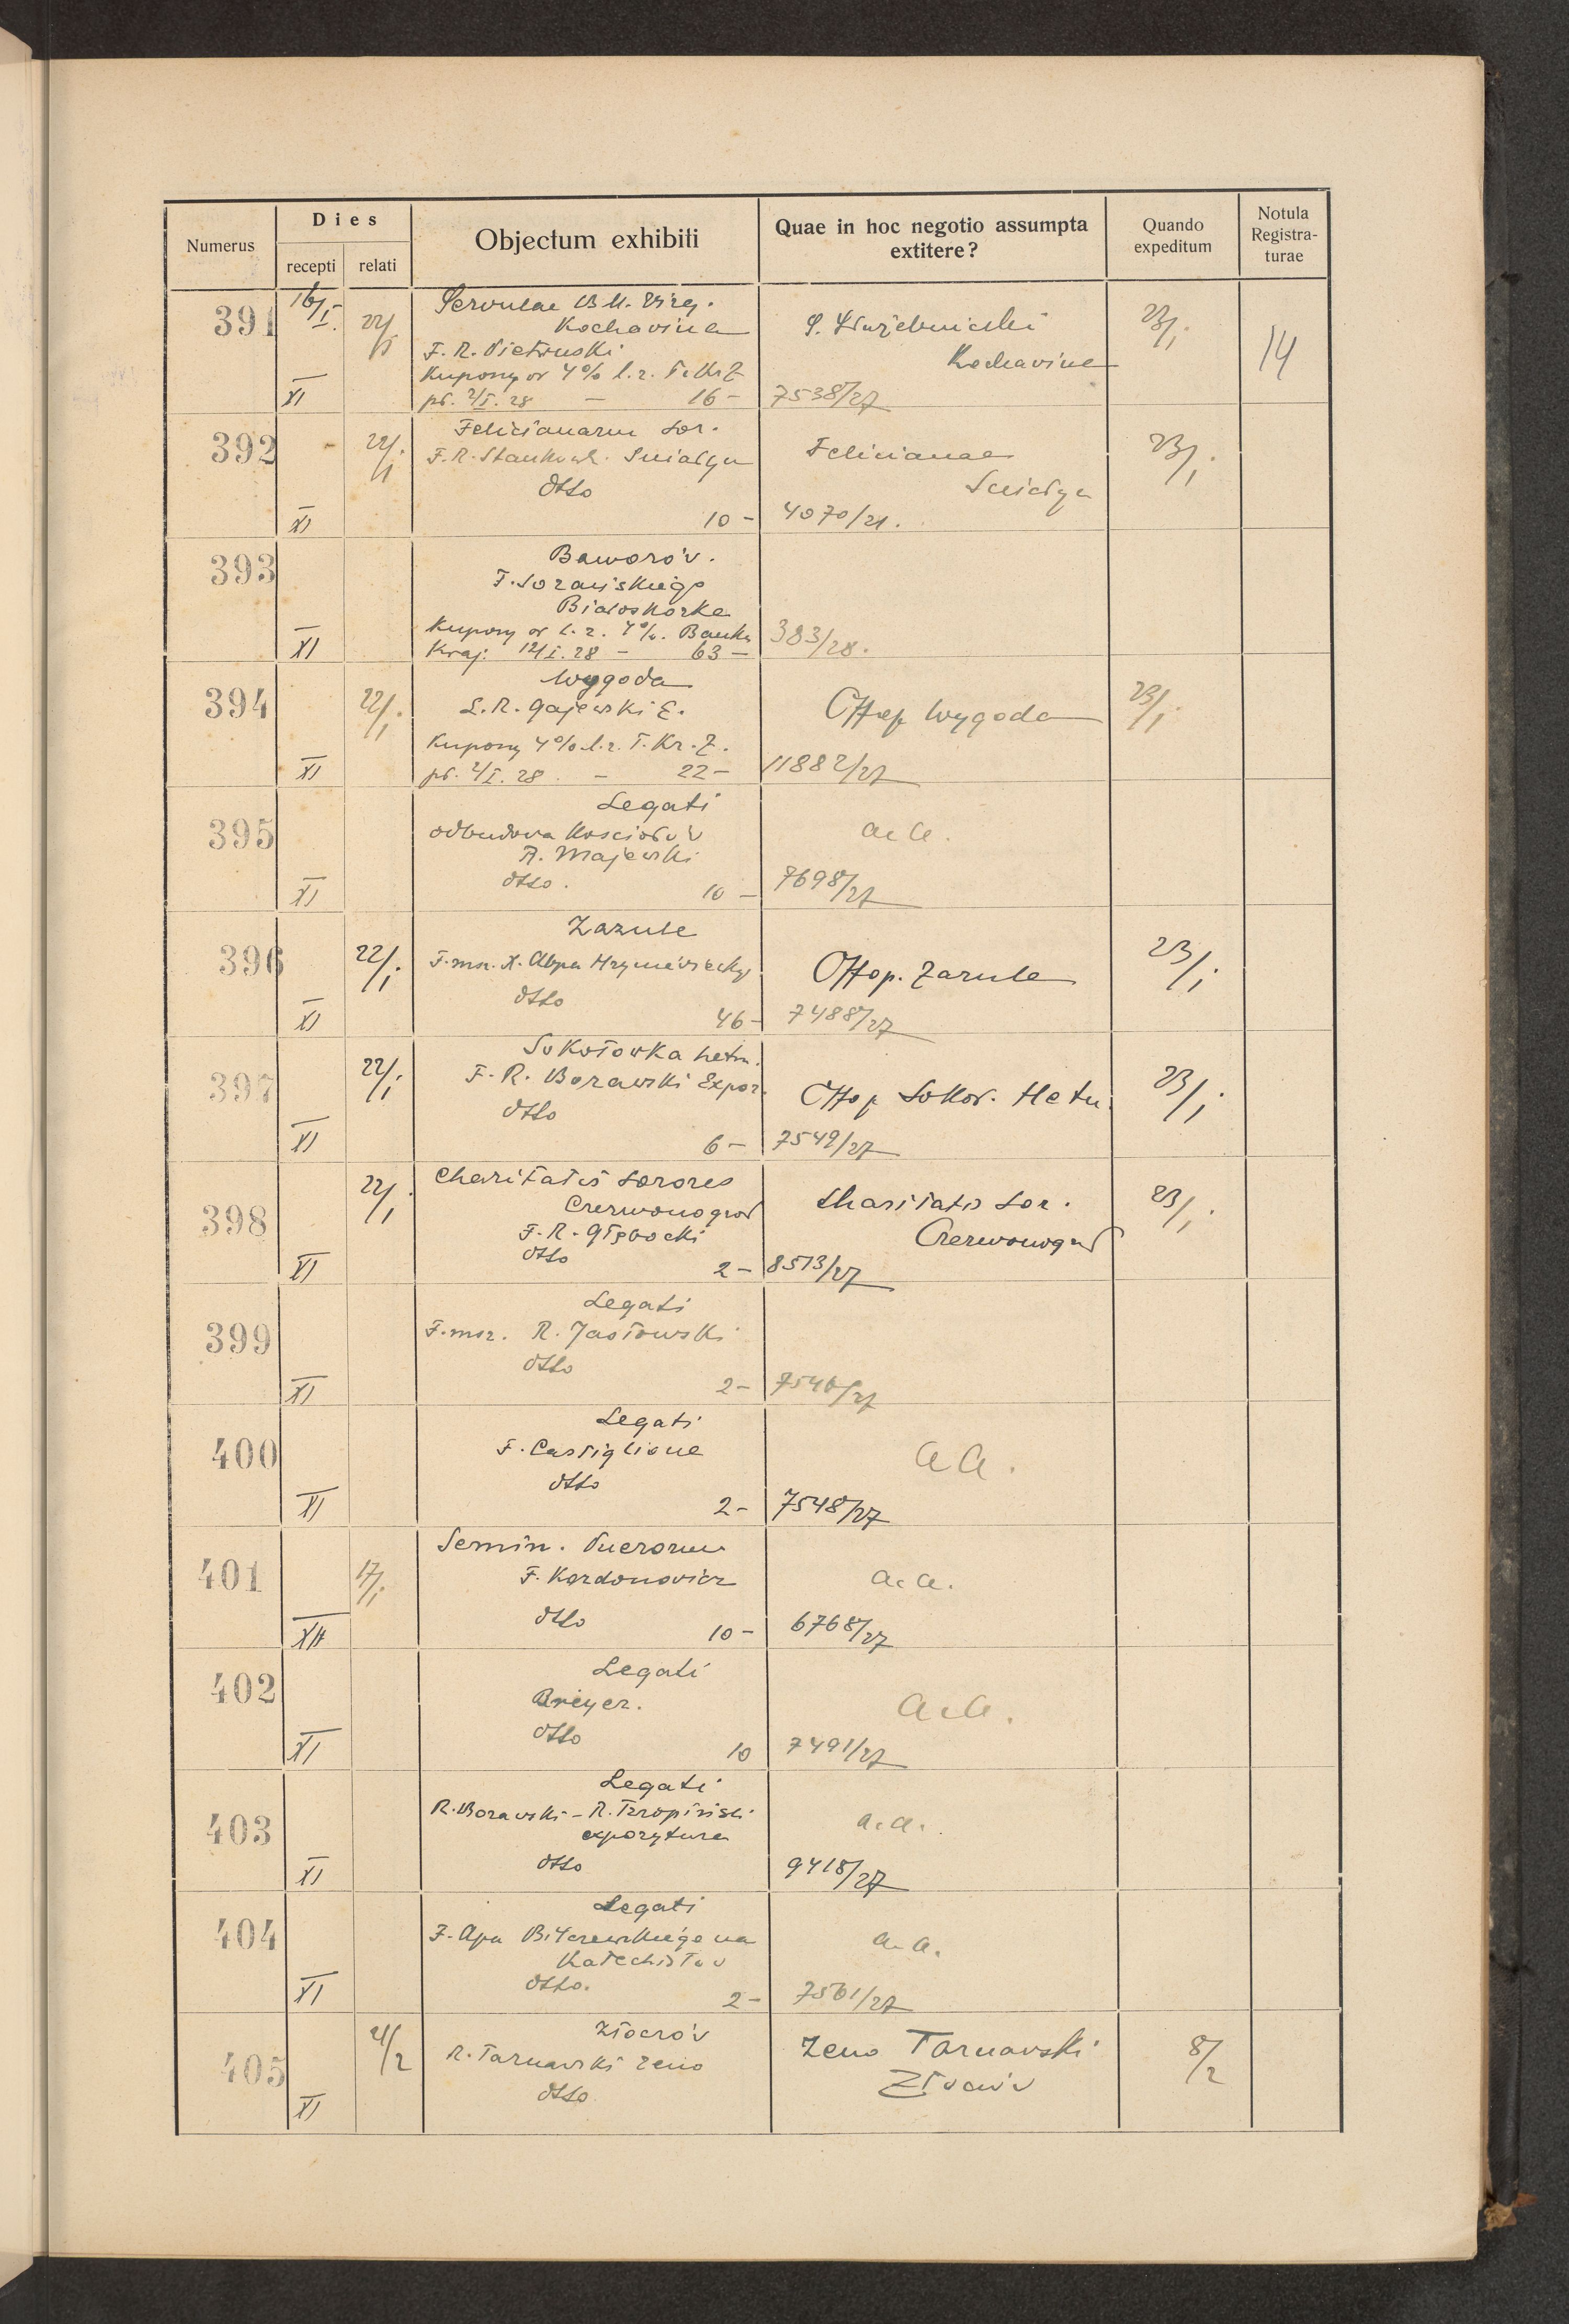 Numerus
Dies
recepti
relati
Objectum exhibiti
Quae in hoc negotio assumpta
extitere?
Quando
expeditum
Notula
Registra-
turae
391
16/I.
22/1
XI
Servulae B.M. Virg.
Kochavina
F. R. Pietruski
Kupony od 4% l. z. T. Kr. Z
pł. 2/I. 28 — 16 —
S. Służebniczki
Kochavina
7538/27
23/1.
14
392
22/1.
XI
Felicianarum Sor.
F. R. Stankows. Sniatyn
dtto
10 —
Felicianae
Sniatyn
4070/21.
23/1.
393
XI
Baworów.
F. Sozańskiego
Białoskórka
Kupony od l. z. 4%. Banku
Kraj. 12/I. 28 — 63 —
383/28.
394
22/1.
XI
Wygoda
L. R. Gajewski E.
Kupony 4% l. z. T. Kr. Z.
pł. 2/I. 28. — 22 —
Offop Wygoda
11882/27
23/1.
395
XI
Legati
odbudowa Kosciołów
A. Majewski
dtto.
10 —
a. a.
7698/27
396
22/1.
XI
Zazule
F. msz. X. Abpa Hryniewiecky
dtto
46 —
Offop. Zazule
7488/27
23/1
397
22/1
XI
Sokołówka hetm.
F. R. Borawski Expoz.
dtto
6 —
Offop Sokoł. Hetm.
7549/27
23/1
398
22/1.
XI
Charitatis Sorores
Czerwonogród
F. R. Głębocki
dtto
2 —
Charitatis Sor.
Czerwonogród
8513/27
23/1.
399
XI
Legati
F. msz. R. Jasłowski
dtto
2 —
7546/27
400
XI
Legati
F. Castiglione
dtto
2 —
a a.
7548/27
401
17/1.
XII
Semin. Puerorum
F. Kardonowicz
dtto
10 —
a. a.
6768/27
402
XI
Legati
Breyer.
dtto
10
a. a.
7491/27
403
XI
Legati
R. Borawski — R. Teropiński
expozytura
dtto
a. a.
9418/27
404
XI
Legati
F. Apa Bilczewskiego na
Katechistów
dtto.
2 —
a. a.
7561/27
405
4/2
XI
Złoczów
R. Tarnawski Zeno
dtto
Zeno Tarnavski
Złoczów
8/2